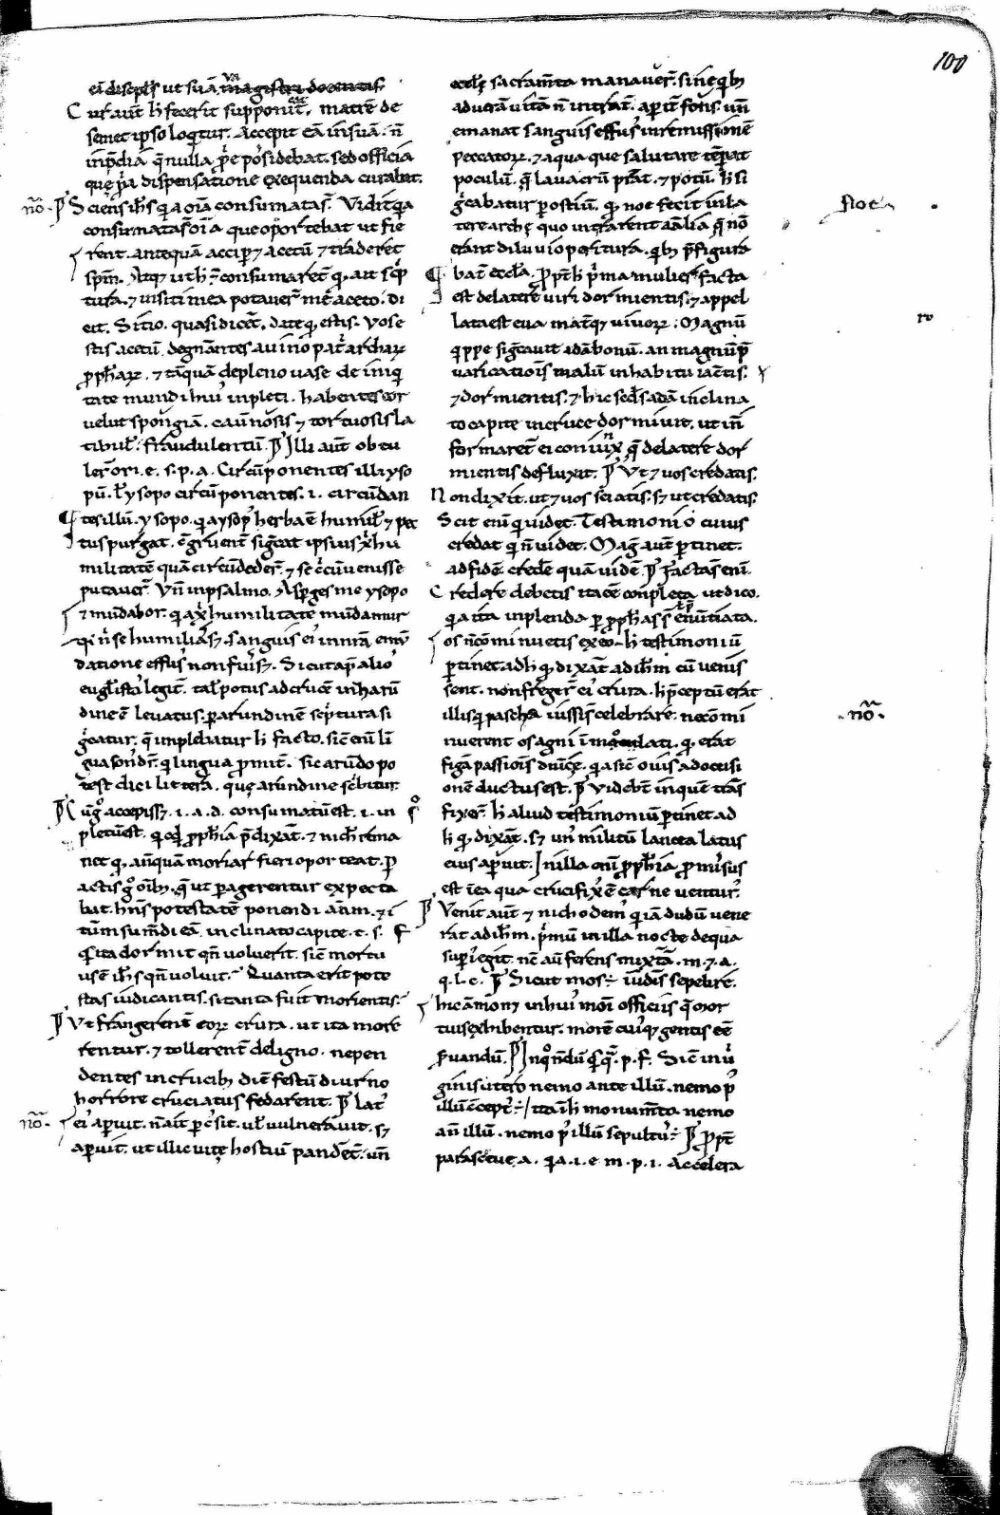 100
ei discipls ut suā magistri docentis
Cur aut h fecerit supponit, matrē de
semet ipso loqtur. Accepit eā in suā. n
in pdia q nulla ppe possidebat. sed officia
que ppa dispensatione exequenda curabat.
nō. P Sciens ihs qa oīa consumata s. Vidit qa
consumata s oīa que oportebat ut fie
rent. antequā accipet acetū ⁊ traderet
spm. Atq ut h consumaret q ait scp
tura. ⁊ in siti mea potaver me aceto. di
cit. Sitio. quasi dicet. date q estis. Vos e
stis acetū degnantes a vino patarcharꝝ
pphaꝝ. ⁊ tāquā de pleno vase de iniq
tate mundi hui inpleti. habentes cor
velut spongiā. cavnosis ⁊ tortuosis la
tibul. fraudulentū. P Illi aut ob tu
ler ori. e. s. p. a. Circūponentes illi yso
pū. l ysopo circūponentes. i. circūdan
tes illū. ysopo. qa ysop herba ē humil ⁊ pec
tus purgat. cgruent sigcat ipsius xi hu
militatē quā circūdeder. ⁊ se ccūvenisse
putaver. Vn in psalmo. Asperges me ysopo
⁊ mundabor. qa xi humilitate mundamur
qi n se humiliass. sanguis ei in nrām emū
datione effus non fuiss. Sicut ap alios
euglistas legit. tal potus ad crucē in harū
dine ē levatus. p arundinē scptura si
gcatur. q implebatur h facto. sic enī lī
gua sond. q lingua pmit. sic arūdo po
test dici littera. que arundine scbitur.
P Cū g accepiss. i. a. d. consumatū est. i. in
pletū est. qcqd pphia pdixat. ⁊ nich rema
net q. anquā moriar fieri oporteat. P
actis g oīb. q ut pagerentur expecta
bat. hns potestatē ponendi anīm. ⁊ i
tum sumdi eā. inclinato capite. t. s.
Q ita dormit qn voluerit. sic mortu
us ē ihs qn voluit. Quanta erit pote
stas iudicantis. si tanta fuit morientis.
P Ut frangerent eoꝝ crura. ut ita more
rentur. ⁊ tollerent de ligno. ne pen
dentes in crucib diē festū diurno
horrore cruciatus fedarent. P lat
nō. ei apuit. n ait pcsit. ul vulneravit. s
apuit. ut illic vite hostiū pandet. un
eccle sacramta manaver. sine qb
ad verā vitā n intrat. apit fons. un
emanat sanguis effus in remissionē
peccatoꝝ. ⁊ aqua que salutare tempat
poculū. q lavacrū pstat. ⁊ potū. h si
gcabatur p ostiū. q noe fecit in la
Noe
tere arche quo intrarent aalia q nō
erant diluvio peritura. qb pfigura
bat eccla. Ppth pma mulier facta
est de latere viri dormientis. ⁊ appel
lata est eva matq vivoꝝ. Magnū
ro
qppe sigcavit ad bonū. an magnū p
varicationis malū in habitu iacentis.
⁊ dormientis. ⁊ hic scds adā inclina
to capite in cruce dormivit. ut in
formaret ei coniunx q de latere dor
mientis defluxit. P Ut ⁊ vos credatis.
Non dixit. ut ⁊ vos sciatis. s ut credatis.
Scit enī qui videt. Testimonio cuius
credat q n videt. Mag aut ptinet.
ad fidē credere quā vidē. P Facta s enī.
Credere debetis ita eē conpleta ut dico.
qa ita inplenda p pphas s enūtiata.
os n cōminuetis ex eo. h testimoniū
ptinet ad h q dixat ad ihm cū venis
sent. non freger ei crura. h pceptū erat
illis q pascha iussi s celebrare. ne cōmi
nō.
nuerent os agni immolati. q erat
figa passionis dnice. qa sic ovis ad occisi
onē ductus est. P Videbt in quē tns
fixer. h aliud testimoniū ptinet ad
h q dixat. s un militū lancea latus
eius apuit. In illa enī pphia pmisus
est in ea qua crucifix ē carne ventur.
P Venit aut ⁊ nichodem q iā dudū vene
rat ad ihm. pmū in illa nocte de qua
supi egit. nc aū ferens mixta. m. ⁊. a.
q. l. c. P Sicut mos iudis sepelire.
hic āmony in huimoi officiis q mor
tuis exhibentur. morē cuiq gentis eē
svandū. P In q nondū qsq. p. f. Sic in v
ginis utero nemo ante illū. nemo p
illū cept. ita in h monumto nemo
an illū. nemo p illū sepult. P Ppt
parasceue a. qa. i. e m. p. i. Accelera